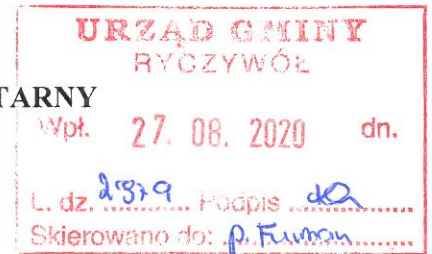 URZĄD GMINY
RYCZYWÓŁ
TARNY
Wpł. 27. 08. 2020 dn.
L. dz. 2379 Podpis
Skierowano do: p. Furman